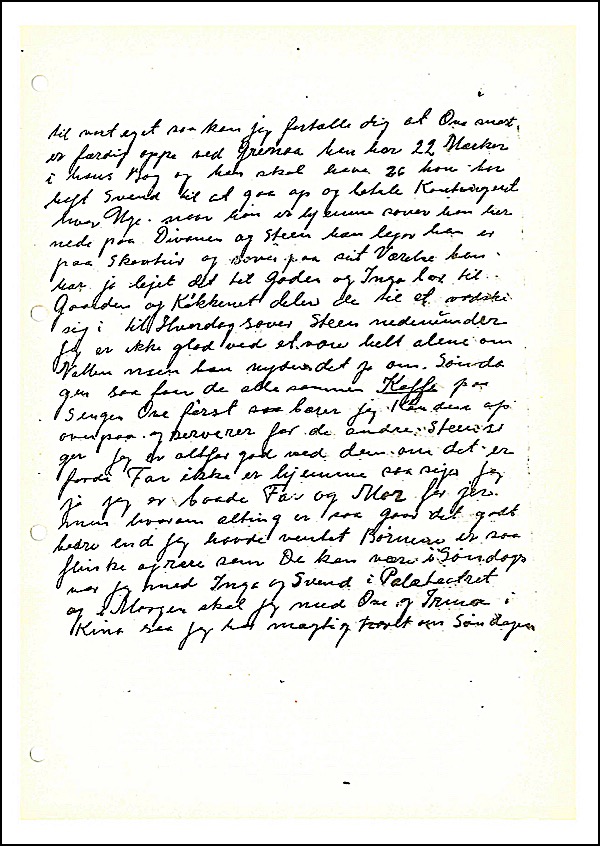 til vort eget saa kan jeg fortælle dig at Ove snart
er færdig oppe ved Grenaa han har 22 Mærker
i hans Bog og han skal have 26 han har
Svend til at gaa op og betale Kontingent
hver Uge. naar han er hjemme sover han her
nede paa Divanen og Steen han han er
paa Skovtur og sover paa sit Værelse han
har jo lejet det til Gaden og Inga bor til
Gaarden og Køkkenet deler de til at vadske
sig i til Hverdag sover Steen nedenunder
jeg er ikke glad ved at være helt alene om
Natten men han nyder det jo om Sønda
gen saa faar de allesammen Kaffe paa
Sengen Ove først saa bærer jeg Kanden op
ovenpaa og serverer for de andre Steen si
ger jeg er altfor god ved dem om det er
fordi Far ikke er hjemme saa siger jeg
jo jeg er baade Far og Mor for jer
men hvorom alting er saa gaar det godt
bedre end jeg havde ventet Børnene er saa
flinke og rare som De kan være i Søndags
var jeg med Inga og Svend i Palæteatret
og i Morgen skal jeg med Ove og Irma i
Kino saa jeg har mægtig travlt om Søndagen